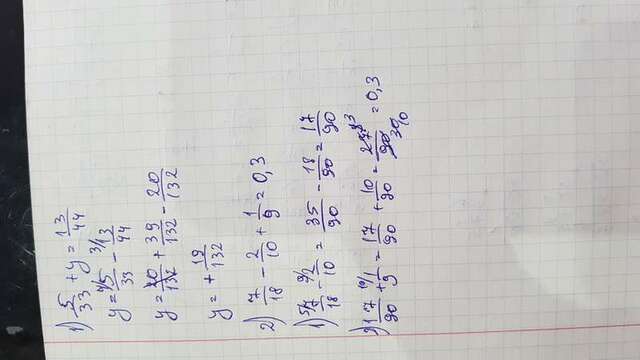 1) 5/33 + y = 13/44
y = 4/5/33 - 3/13/44
y = 20/132 + 39/132 - 20/132
y = + 19/132
2) 7/18 - 2/10 + 1/9 = 0,3
1) 5/7/18 - 9/2/10 = 35/90 - 18/90 = 17/90
2) 17/90 + 10/1/9 = 17/90 + 10/90 = 27/90 3/10 = 0,3